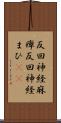 反回神経麻
痺反回神経
まひ